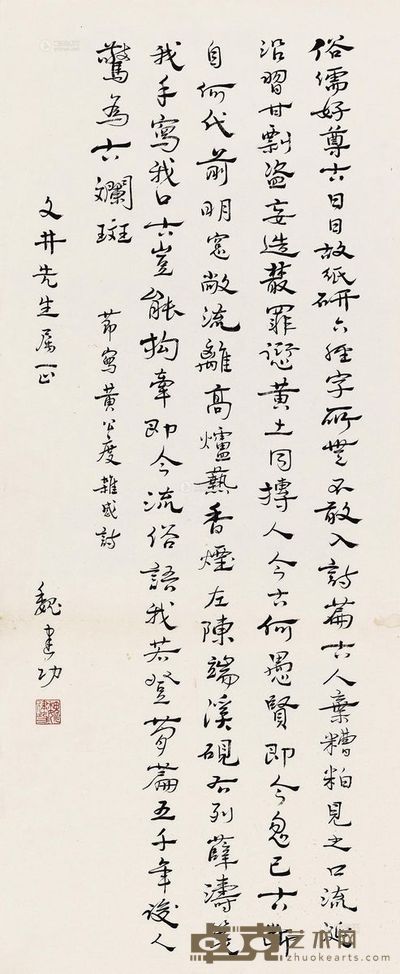 俗儒好尊古日日故紙研六經字所無不敢入詩篇古人棄糟粕見之口流涎
沿習甘剽盜妄造叢罪愆黃土同摶人今古何愚賢即今忽已古斷
自何代前明窓敞流離高爐爇香煙左陳端溪硯右列薛濤箋
我手寫我口古豈能拘牽即今流俗語我若登簡篇五千年後人
驚為古斕斑
節寫黃公度雜感詩
文井先生属正
魏建功
卓克艺术网
zhuokearts.com